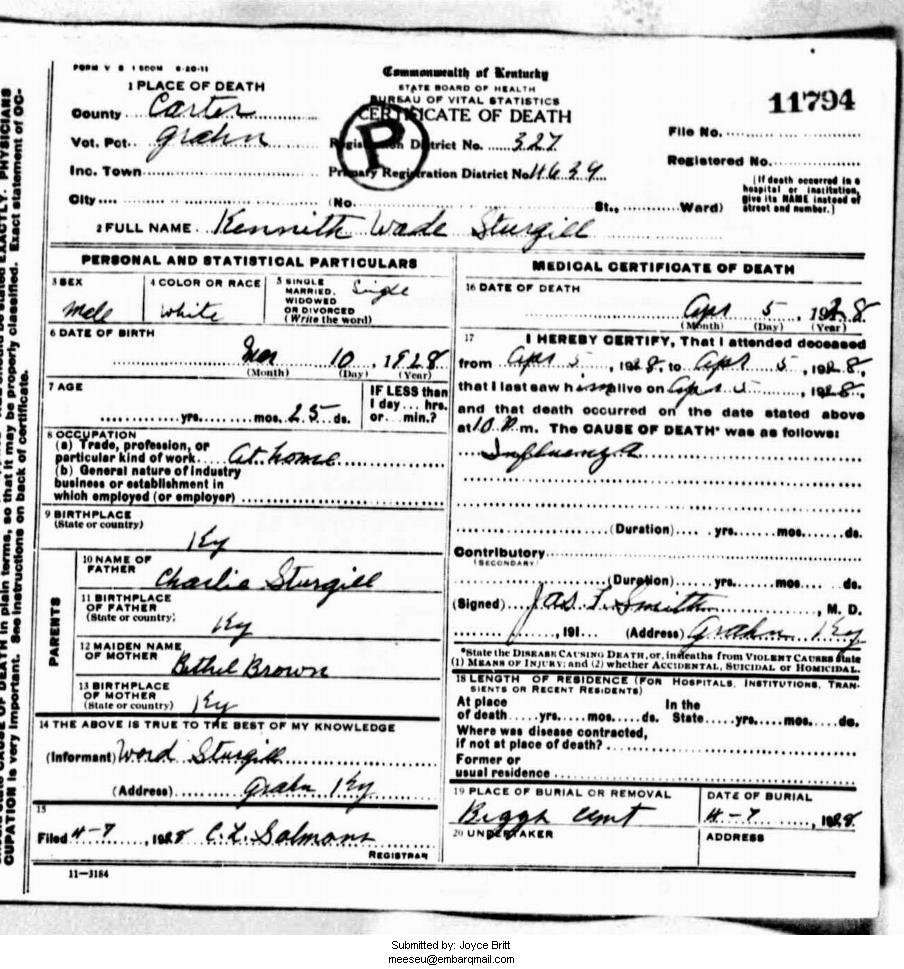 FORM V S 1 500M 6-20-11
Commonwealth of Kentucky
STATE BOARD OF HEALTH
BUREAU OF VITAL STATISTICS
CERTIFICATE OF DEATH
11794
1 PLACE OF DEATH
County Carter
Vot. Pct. Grahn
Registration District No. 327
File No.
Inc. Town
Primary Registration District No. 4639
Registered No.
City (No. St., Ward)
(If death occurred in a hospital or institution, give its NAME instead of street and number.)
P
2 FULL NAME Kennith Wade Sturgill
PERSONAL AND STATISTICAL PARTICULARS
3 SEX
Male
4 COLOR OR RACE
White
5 SINGLE MARRIED, WIDOWED OR DIVORCED (Write the word)
Single
6 DATE OF BIRTH
Mar 10, 1928
(Month) (Day) (Year)
7 AGE
yrs. mos. 25 ds.
IF LESS than 1 day ... hrs. or ... min.?
8 OCCUPATION
(a) Trade, profession, or
particular kind of work At home
(b) General nature of industry
business or establishment in
which employed (or employer)
9 BIRTHPLACE
(State or country)
Ky
PARENTS
10 NAME OF FATHER
Charlie Sturgill
11 BIRTHPLACE OF FATHER
(State or country)
Ky
12 MAIDEN NAME OF MOTHER
Bethel Brown
13 BIRTHPLACE OF MOTHER
(State or country)
Ky
14 THE ABOVE IS TRUE TO THE BEST OF MY KNOWLEDGE
(Informant) Word Sturgill
(Address) Grahn Ky
15
Filed 4-7, 1928 C.L. Salmons
REGISTRAR
11—3184
MEDICAL CERTIFICATE OF DEATH
16 DATE OF DEATH
Apr 5 1928
(Month) (Day) (Year)
17 I HEREBY CERTIFY, That I attended deceased
from Apr 5, 1928, to Apr 5, 1928,
that I last saw him alive on Apr 5, 1928,
and that death occurred on the date stated above
at 10 P.m. The CAUSE OF DEATH* was as follows:
Influenza
(Duration) yrs. mos. ds.
Contributory
(SECONDARY)
(Duration) yrs. mos. ds.
(Signed) Jas T. Smith, M. D.
, 191... (Address) Grahn Ky
*State the DISEASE CAUSING DEATH, or, in deaths from VIOLENT CAUSES state
(1) MEANS OF INJURY; and (2) whether ACCIDENTAL, SUICIDAL or HOMICIDAL.
18 LENGTH OF RESIDENCE (FOR HOSPITALS, INSTITUTIONS, TRANSIENTS OR RECENT RESIDENTS)
At place of death yrs. mos. ds. In the State yrs. mos. ds.
Where was disease contracted,
if not at place of death?
Former or
usual residence
19 PLACE OF BURIAL OR REMOVAL
Biggs Cemt
DATE OF BURIAL
4-7, 1928
20 UNDERTAKER
ADDRESS
CAUSE OF DEATH in plain terms, so that it may be properly classified. Exact statement of OC-
CUPATION is very important. See instructions on back of certificate.
EXACTLY. PHYSICIANS
Submitted by: Joyce Britt
meeseu@embarqmail.com